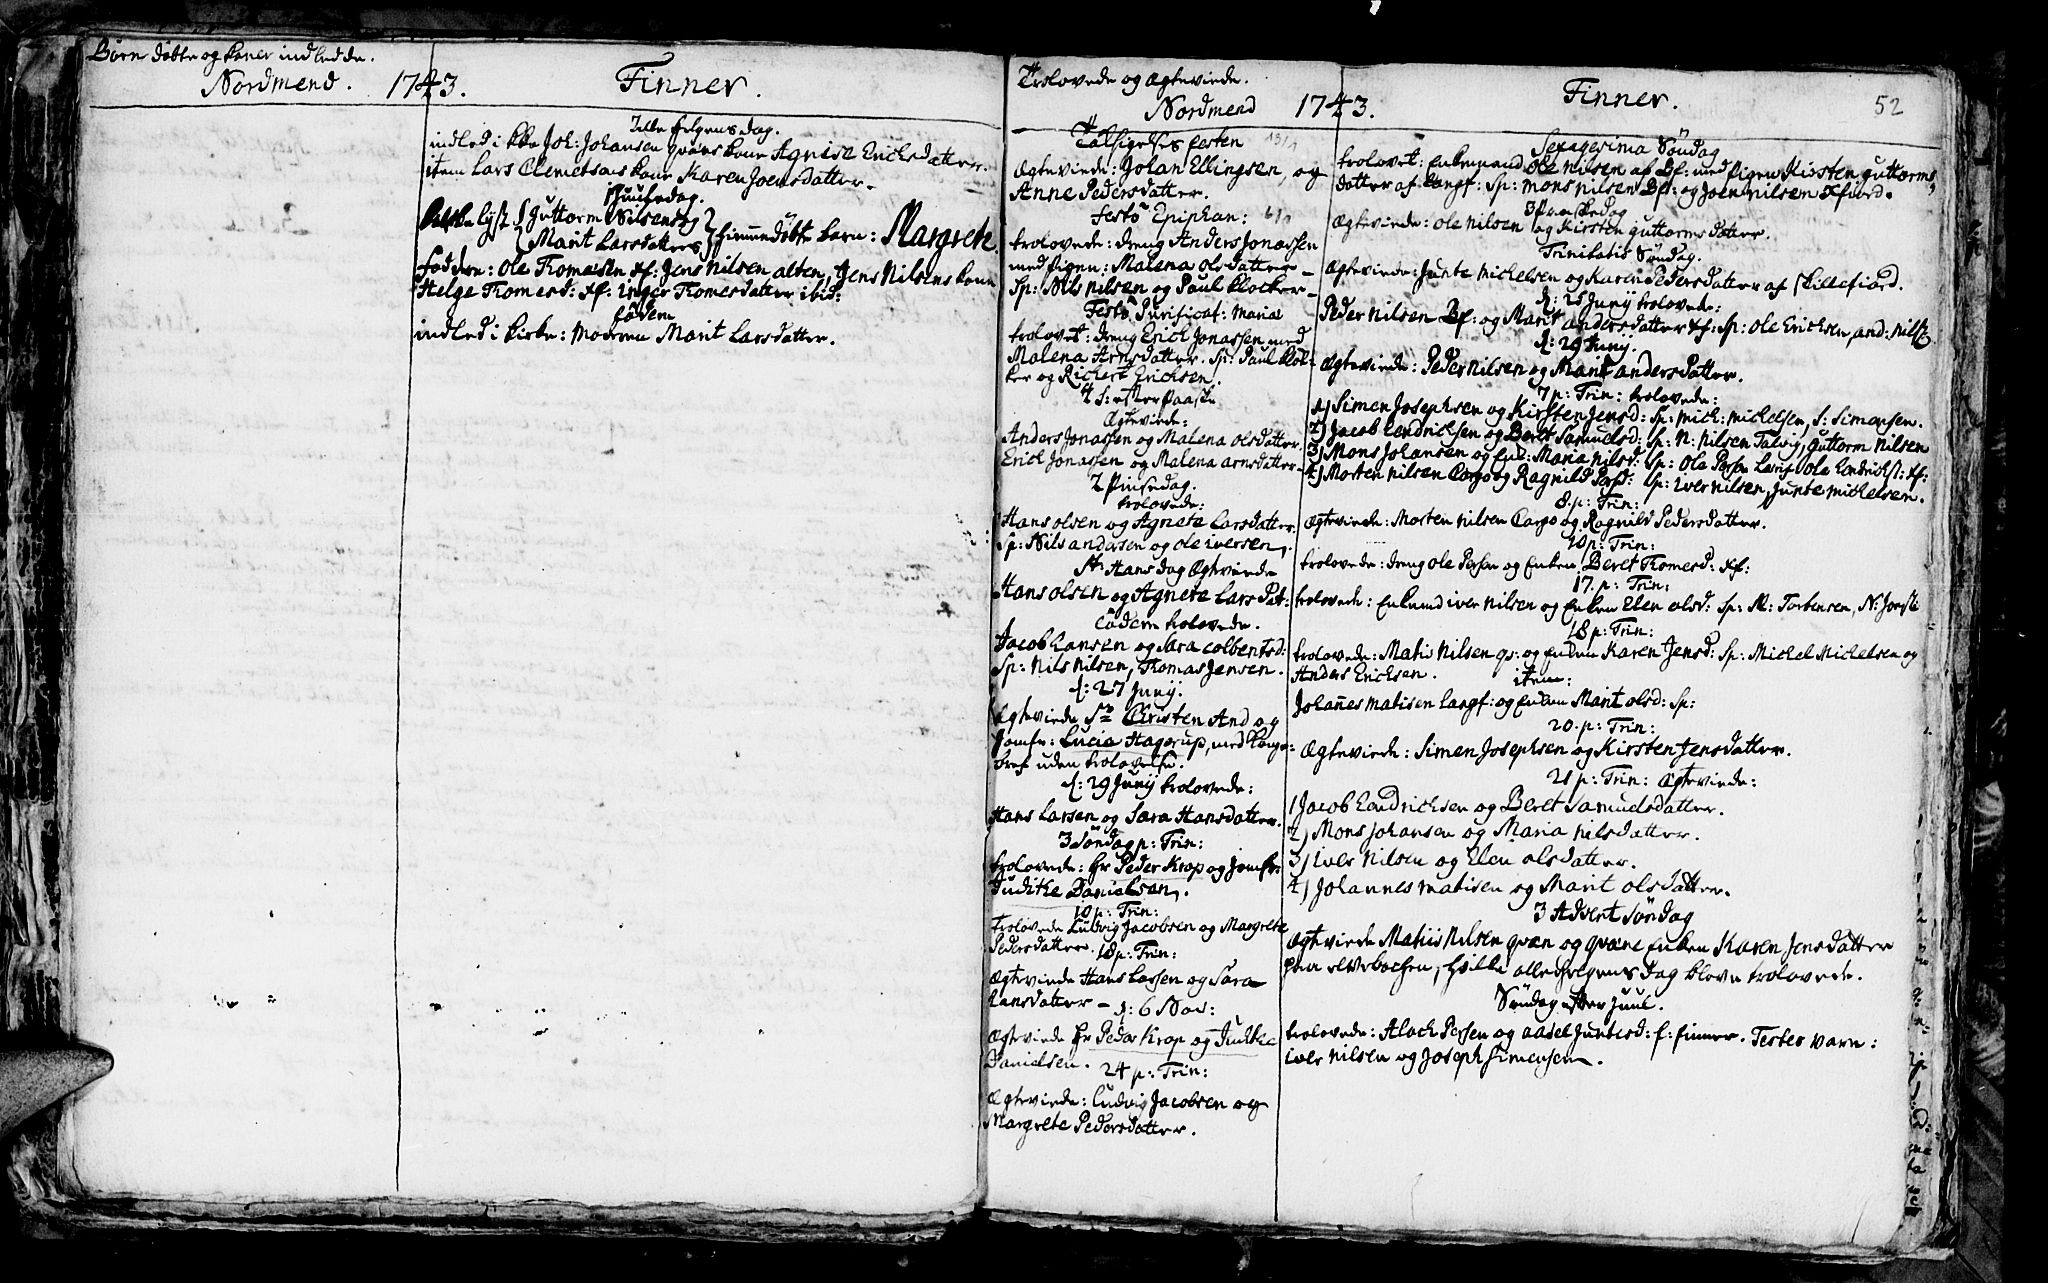 Børn døbte og koner indledde.
Nordmend. 1743. Finner.
Alle helgens dag.
indled i kke Joh: Johansen qvæns kone Agnise Erichsdatter.
item Lars Clemetsens kone Karen Joensdatter.
Juuledag.
lyst Guttorm Nilsen og
Marit Larsdatters hiemmedøbte barn: Margrete
fadderne: Ole Tomesen xf: Jens Nilsen alten, Jens Nilsens kone
Helge Tomesd: xf: Inger Tomesdatter ibid:
Eodem
indled i kirke: moderen Marit Larsdatter.
Trolovede og ægteviede.
Nordmend 1743. Finner. 52
Taksigelses festen 13/1
ægteviede: Johan Ellingsen, og
Anne Pedersdatter.
Festo Epiphan: 6/1
trolovede: dreng Anders Jonassen
med Pigen: Malena olsdatter
Sp: Nils Nilsen og Paul klocker
Festo Purificat: Mariæ
trolovet: dreng Erich Jonassen med
Malena Arnsdatter. Sp: Paul klok-
ker og Richert Erichsen.
4 S: efter Paaske
Ægteviede:
Anders Jonassen og Malena olsdatter
Erich Jonassen og Malena arnsdatter
2 Pinsedag.
trolovede:
Hans olsen og Agnete Larsdatter
Sp: Nils andersen og ole iversen.
St Hans dag Ægteviede
Hans olsen og Agnete Lars Dat:
Eodem trolovede.
Jacob Lansen og Sara colbentsd:
Sp: Nils Nilsen, Thomas Jensen.
d: 27 Junij.
Ægteviede Sr Christen And og
Jomfr: Lucia Hagerup, med konge-
bref uden trolovelse.
d: 29 Junij trolovede:
Hans Larsen og Sara Hansdatter.
3 Søndag p: Trin:
trolovede: Hr Peder Krop og Jomfr:
Judithe Danielsen.
10 p: Trin:
Trolovede Ludvig Jacobsen og Margrete
Pedersdatter. 18 p: Trin:
Ægteviede Hans Larsen og Sara
Hansdatter - d: 6 Nov:
Ægteviede Hr Peder Krop og Judithe
Danielsen. 24 p: Trin:
Ægteviede: Ludvig Jacobsen og
Margrete Pedersdatter.
Sexagesima Søndag
trolovet: Enkemand Ole Nilsen af Bf: med Pigen Kirsten guttorms
datter af Langf: Sp: Mons Nilsen Bf: og Joen Nilsen xfiord.
3 Paaskedag
Ægteviede: Ole Nilsen og Kirsten guttormsdatter.
Trinitatis Søndag.
Ægteviede: Junte Michelsen og Karen Pedersdatter af Skillefiord.
d: 25 Junij trolovede:
Peder Nilsen Bf: og Marit andersdatter xf: Sp: Ole Erichsen, and: Nils:
d: 29 Junij.
Ægteviede: Peder Nilsen og Marit andersdatter.
7 p: Trin: trolovede:
1) Simen Josephsen og Kirsten Jensd: Sp: Mich: Michelsen, S: Simonsen.
2) Jacob Hendrichsen og Beret Samuelsd: Sp: N: Nilsen Talvig, guttorm Nilsen
3) Mons Johansen og Enk: Maria Nilsd: Sp: Ole Persen Langf: Ole Hendrichs: xf:
4) Morten Nilsen Corgo og Ragnild Persd: Sp: Iver Nilsen, Junte Michelsen.
8 p: Trin:
Ægteviede: Morten Nilsen Corgo og Ragnild Pedersdatter.
10 p: Trin:
trolovede: dreng Ole Persen og Enken Beret Tomesd: xf:
17. p: Trin:
trolovede: Enkemd iver Nilsen og Enken Elen olsd: Sp: M: Torbensen, N:
18 p: Trin:
trolovede: Matis Nilsen qv: og Enken Karen Jensd: Sp: Michel Michelsen og
Anders Erichsen. item:
Johannes Matisen Langf: og Enken Marit olsd: Sp:
20 p: Trin:
Ægteviede: Simen Josephsen og Kirsten Jensdatter.
21 p: Trin: Ægteviede:
1 Jacob Hendrichsen og Beret Samuelsdatter.
2) Mons Johansen og Maria Nilsdatter.
3) Iver Nilsen og Elen olsdatter.
4) Johannes Matisen og Marit olsdatter.
3 Advent Søndag
Ægteviede Matis Nilsen qvæn og qvæne Enken Karen Jensdatter
paa elvebachen, hvilke allehelgens dag bleve trolovede.
Søndag efter Juul.
trolovede: Alach Persen og aasel Juntesd: f: finner. Testes varn:
iver Nilsen og Joseph Simensen.